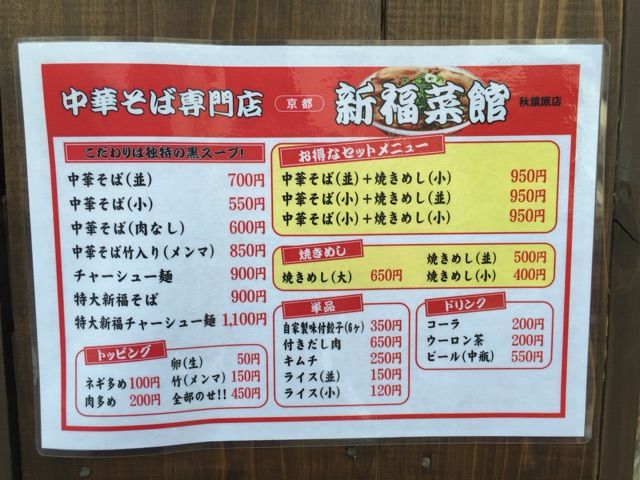 中華そば専門店 京都 新福菜館 秋葉原店
こだわりは独特の黒スープ!
中華そば(並) 700円
中華そば(小) 550円
中華そば(肉なし) 600円
中華そば竹入り(メンマ) 850円
チャーシュー麺 900円
特大新福そば 900円
特大新福チャーシュー麺 1,100円
トッピング
ネギ多め 100円
肉多め 200円
卵(生) 50円
竹(メンマ) 150円
全部のせ!! 450円
お得なセットメニュー
中華そば(並)+焼きめし(小) 950円
中華そば(小)+焼きめし(並) 950円
中華そば(小)+焼きめし(小) 950円
焼きめし
焼きめし(大) 650円
焼きめし(並) 500円
焼きめし(小) 400円
単品
自家製味付餃子(6ヶ) 350円
付きだし肉 650円
キムチ 250円
ライス(並) 150円
ライス(小) 120円
ドリンク
コーラ 200円
ウーロン茶 200円
ビール(中瓶) 550円